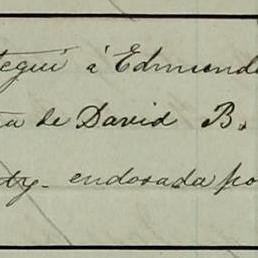 tegui á Edmundo
de David B.
ty. endosada po